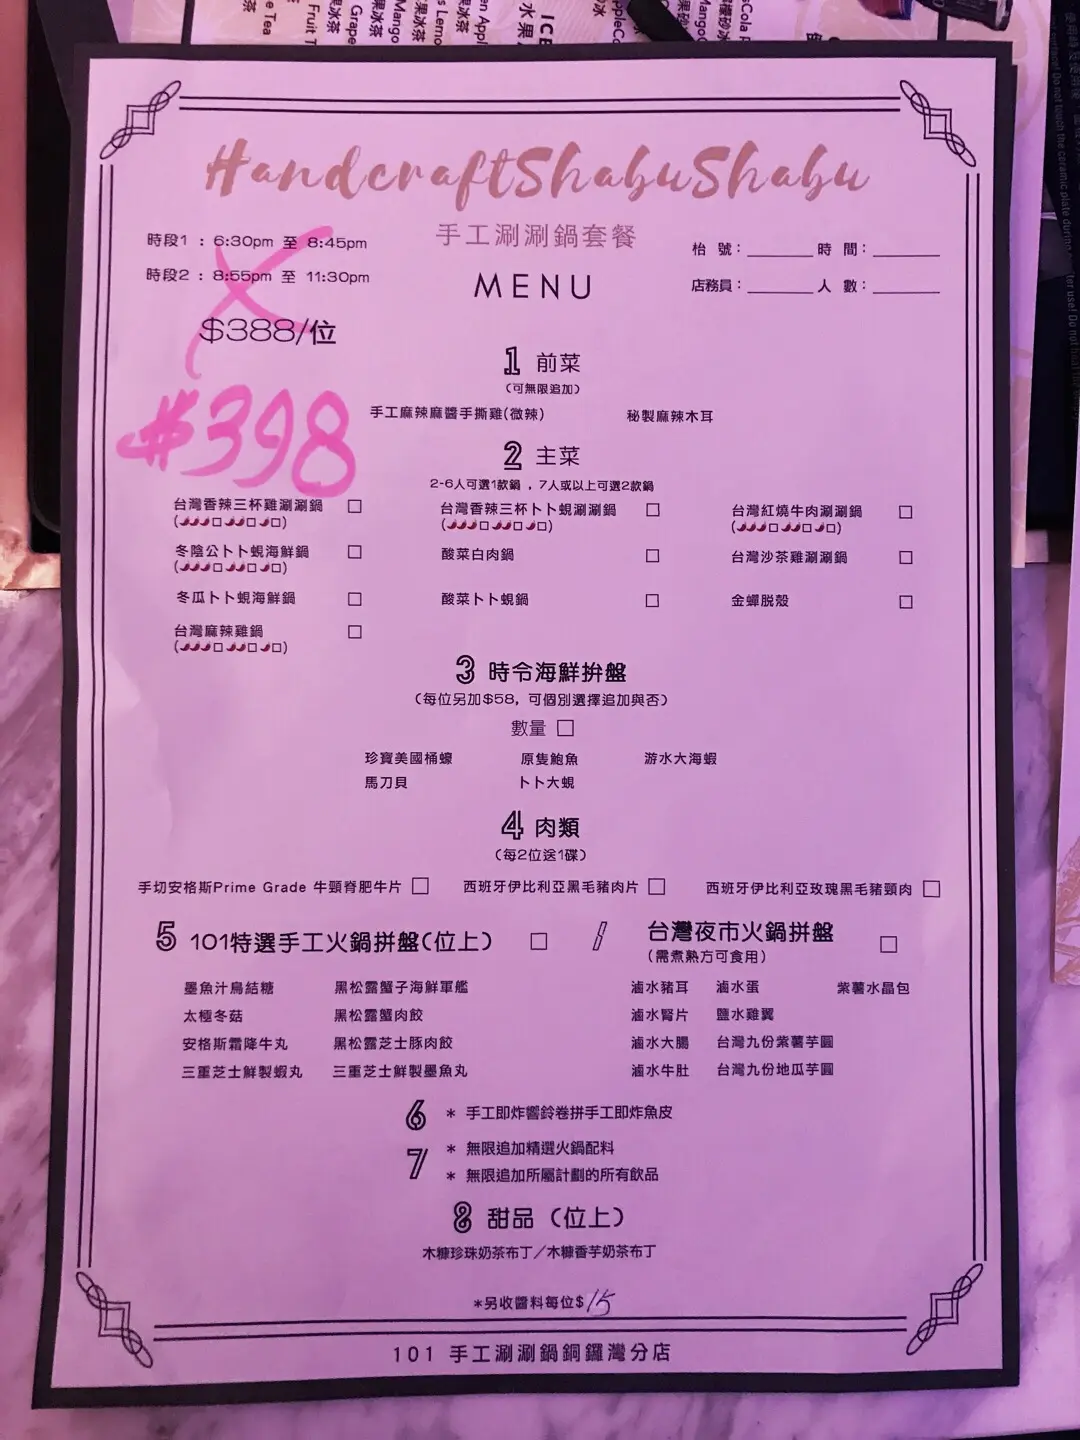 HandcraftShabuShabu
手工涮涮鍋套餐
MENU
時段1 : 6:30pm 至 8:45pm
時段2 : 8:55pm 至 11:30pm
$388/位
$398
枱 號：______ 時 間：______
店務員：______ 人 數：______
1 前菜
(可無限追加)
手工麻辣麻醬手撕雞(微辣) 秘製麻辣木耳
2 主菜
2-6人可選1款鍋 , 7人或以上可選2款鍋
台灣香辣三杯雞涮涮鍋 □ 台灣香辣三杯卜卜蜆涮涮鍋 □ 台灣紅燒牛肉涮涮鍋 □
冬陰公卜卜蜆海鮮鍋 □ 酸菜白肉鍋 □ 台灣沙茶雞涮涮鍋 □
冬瓜卜卜蜆海鮮鍋 □ 酸菜卜卜蜆鍋 □ 金蟬脱殼 □
台灣麻辣雞鍋 □
3 時令海鮮拚盤
(每位另加$58, 可個別選擇追加與否)
數量 □
珍寶美國桶蠔 原隻鮑魚 游水大海蝦
馬刀貝 卜卜大蜆
4 肉類
(每2位送1碟)
手切安格斯Prime Grade 牛頸脊肥牛片 □ 西班牙伊比利亞黑毛豬肉片 □ 西班牙伊比利亞玫瑰黑毛豬頸肉 □
5 101特選手工火鍋拼盤(位上) □ / 台灣夜市火鍋拼盤 □
(需煮熟方可食用)
墨魚汁鳥結糖 黑松露蟹子海鮮軍艦 滷水豬耳 滷水蛋 紫薯水晶包
太極冬菇 黑松露蟹肉餃 滷水腎片 鹽水雞翼
安格斯霜降牛丸 黑松露芝士豚肉餃 滷水大腸 台灣九份紫薯芋圓
三重芝士鮮製蝦丸 三重芝士鮮製墨魚丸 滷水牛肚 台灣九份地瓜芋圓
6 * 手工即炸響鈴卷拼手工即炸魚皮
7 * 無限追加精選火鍋配料
* 無限追加所屬計劃的所有飲品
8 甜品 (位上)
木糠珍珠奶茶布丁／木糠香芋奶茶布丁
*另收醬料每位$15
101 手工涮涮鍋銅鑼灣分店